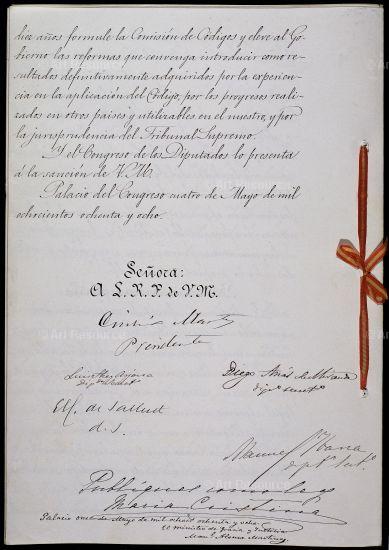 diez años formule la Comisión de Códigos y eleve al Go-
bierno las reformas que convenga introducir como re-
sultados definitivamente adquiridos por la experien-
cia en la aplicación del Código, por los progresos reali-
zados en otros países y utilizables en el nuestro, y por
la jurisprudencia del Tribunal Supremo.
Y el Congreso de los Diputados lo presenta
á la sanción de V. M.
Palacio del Congreso cuatro de Mayo de mil
ochocientos ochenta y ocho.
Señora:
A L. R. P. de V. M.
Cristino Martos
Presidente
Diego Arias de Miranda
El C. de Sallent
d. s.
Publíquese como ley
María Cristina
Palacio once de Mayo de mil ochocº ochenta y ocho
El ministro de Gracia y Justicia
Manl Alonso Martínez
Art Resource